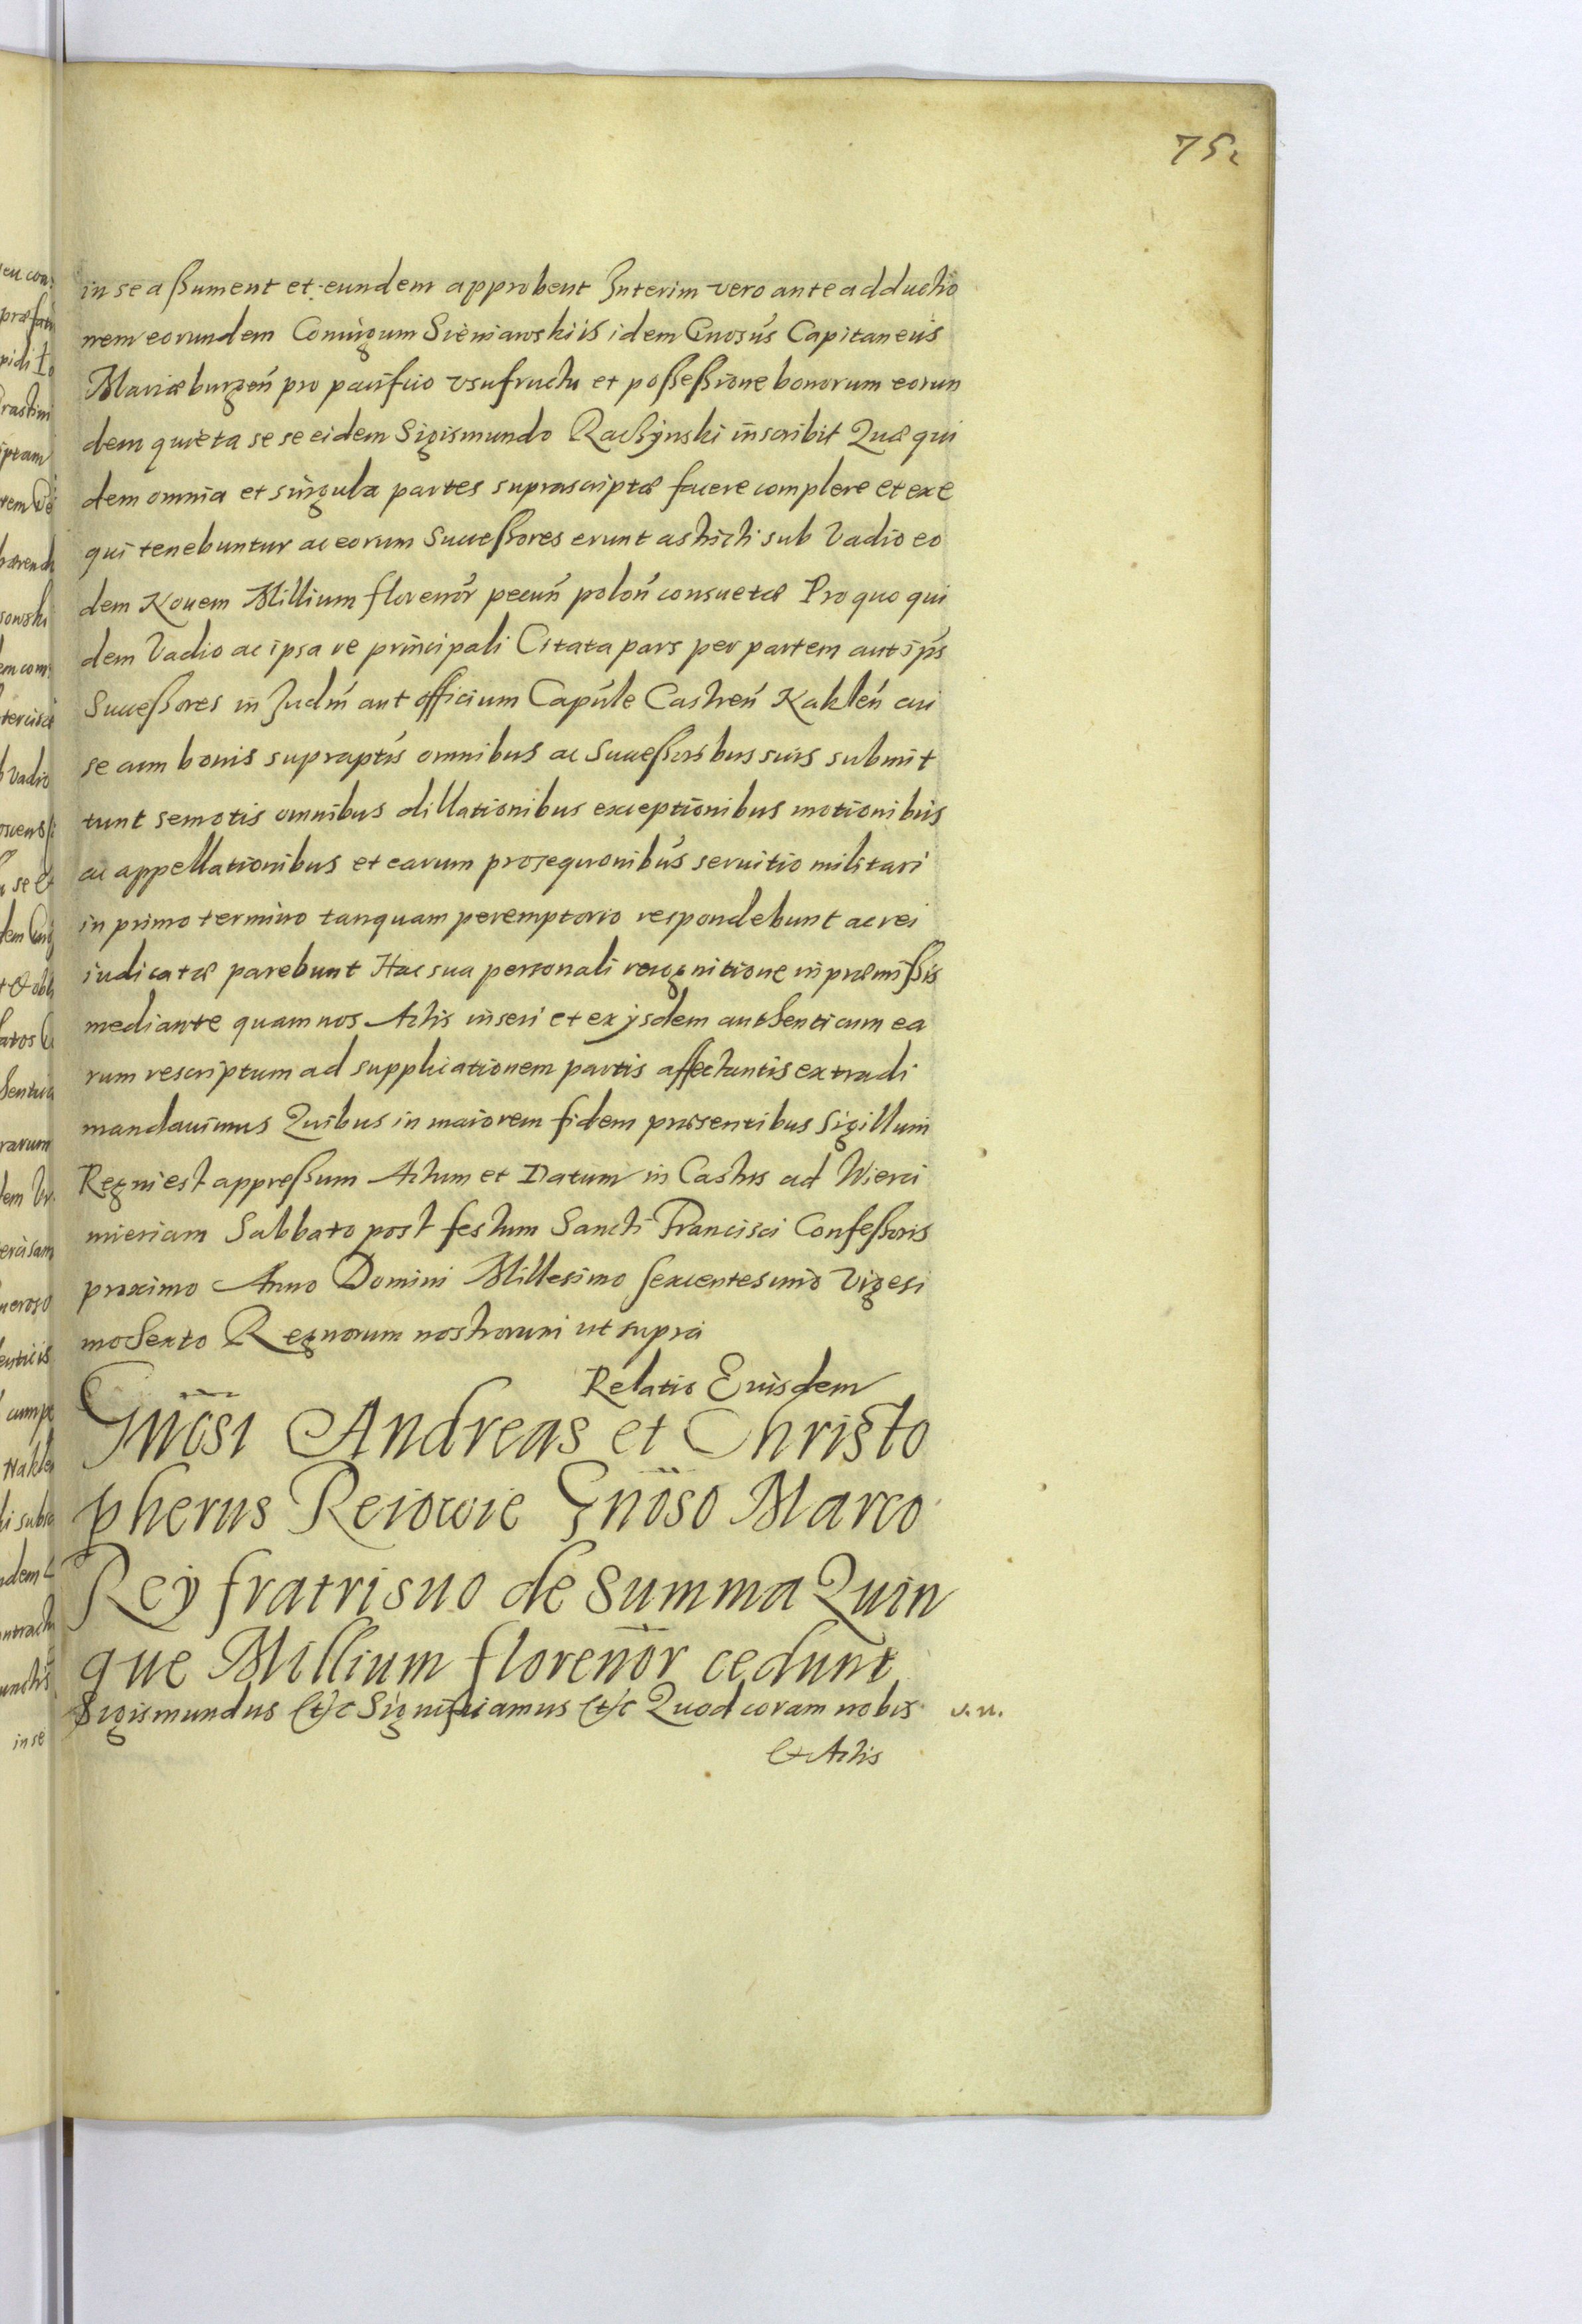 75.
in se aßument et eundem approbent Interim vero ante adductio
nem eorundem Coniugum Sieniawskiis idem Gnosus Capitaneus
Mariæburgen pro pacifico vsufructu et poßeßione bonorum eorun
dem quieta se se eidem Sigismundo Raczÿnski inscribit Quæ qui
dem omnia et singula partes suprascriptæ facere complere et exe
qui tenebuntur ac eorum Succeßores erunt astricti sub Vadio eo
dem Nouem Millium florenor pecun polon consuetæ Pro quo qui
dem Vadio ac ipsa re principali Citata pars per partem aut ips
Succeßores in Judm aut officium Capnle Castren Naklen cui
se cum bonis supraptis omnibus ac Succeßoribus suis submit
tunt semotis omnibus dillationibus exceptionibus motionibus
ac appellationibus et earum prosequonibus seruitio militari
in primo termino tanquam peremptorio respondebunt ac rei
iudicatæ parebunt Hac sua personali recognitione in præmißis
mediante quam nos Actis inseri et ex ÿsdem authenticum ea
rum rescriptum ad supplicationem partis affectantis extradi
mandauimus Quibus in maiorem fidem præsentibus Sigillum
Regni est appreßum Actum et Datum in Castris ad Wierci
mieriam Sabbato post festum Sancti Francisci Confeßoris
proximo Anno Domini Millesimo sexcentesimo Vigesi
mo Sexto Regnorum nostrorum ut supra
Relatio Eiusdem
Gnosi Andreas et Christo
pherus Reiowie Gnoso Marco
Reÿ fratri suo de Summa Quin
que Millium florenor cedunt
Sigismundus etc Significamus etc Quod coram nobis v. n.
et Actis